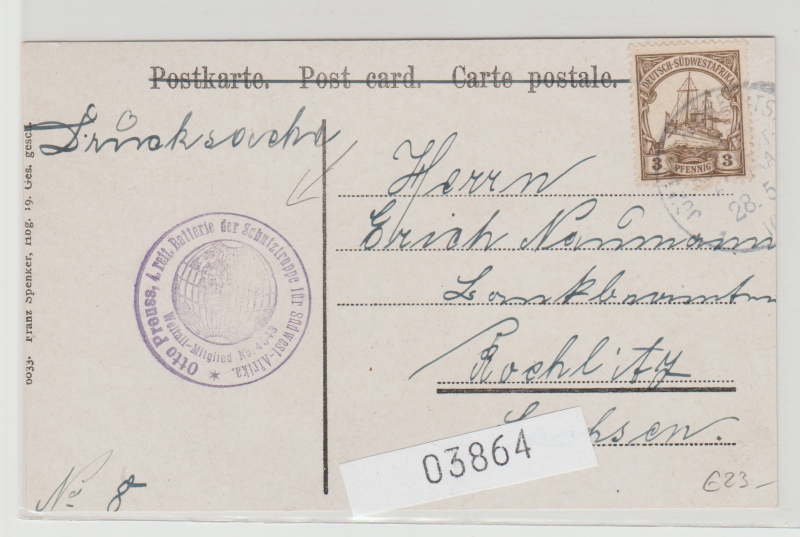 Postkarte. Post card. Carte postale.
Drucksache
DEUTSCH-SÜDWESTAFRIKA
3 PFENNIG 3
28. 5
Herrn
Erich Naumann
Bankbeamter
Rochlitz
Sachsen.
Otto Preuss, 4. reit. Batterie der Schutztruppe für Südwest-Afrika.
Weltall-Mitglied No. 4643
*
0033. Franz Spenker, Hbg. 19. Ges. gesch.
No 8
03864
€23-